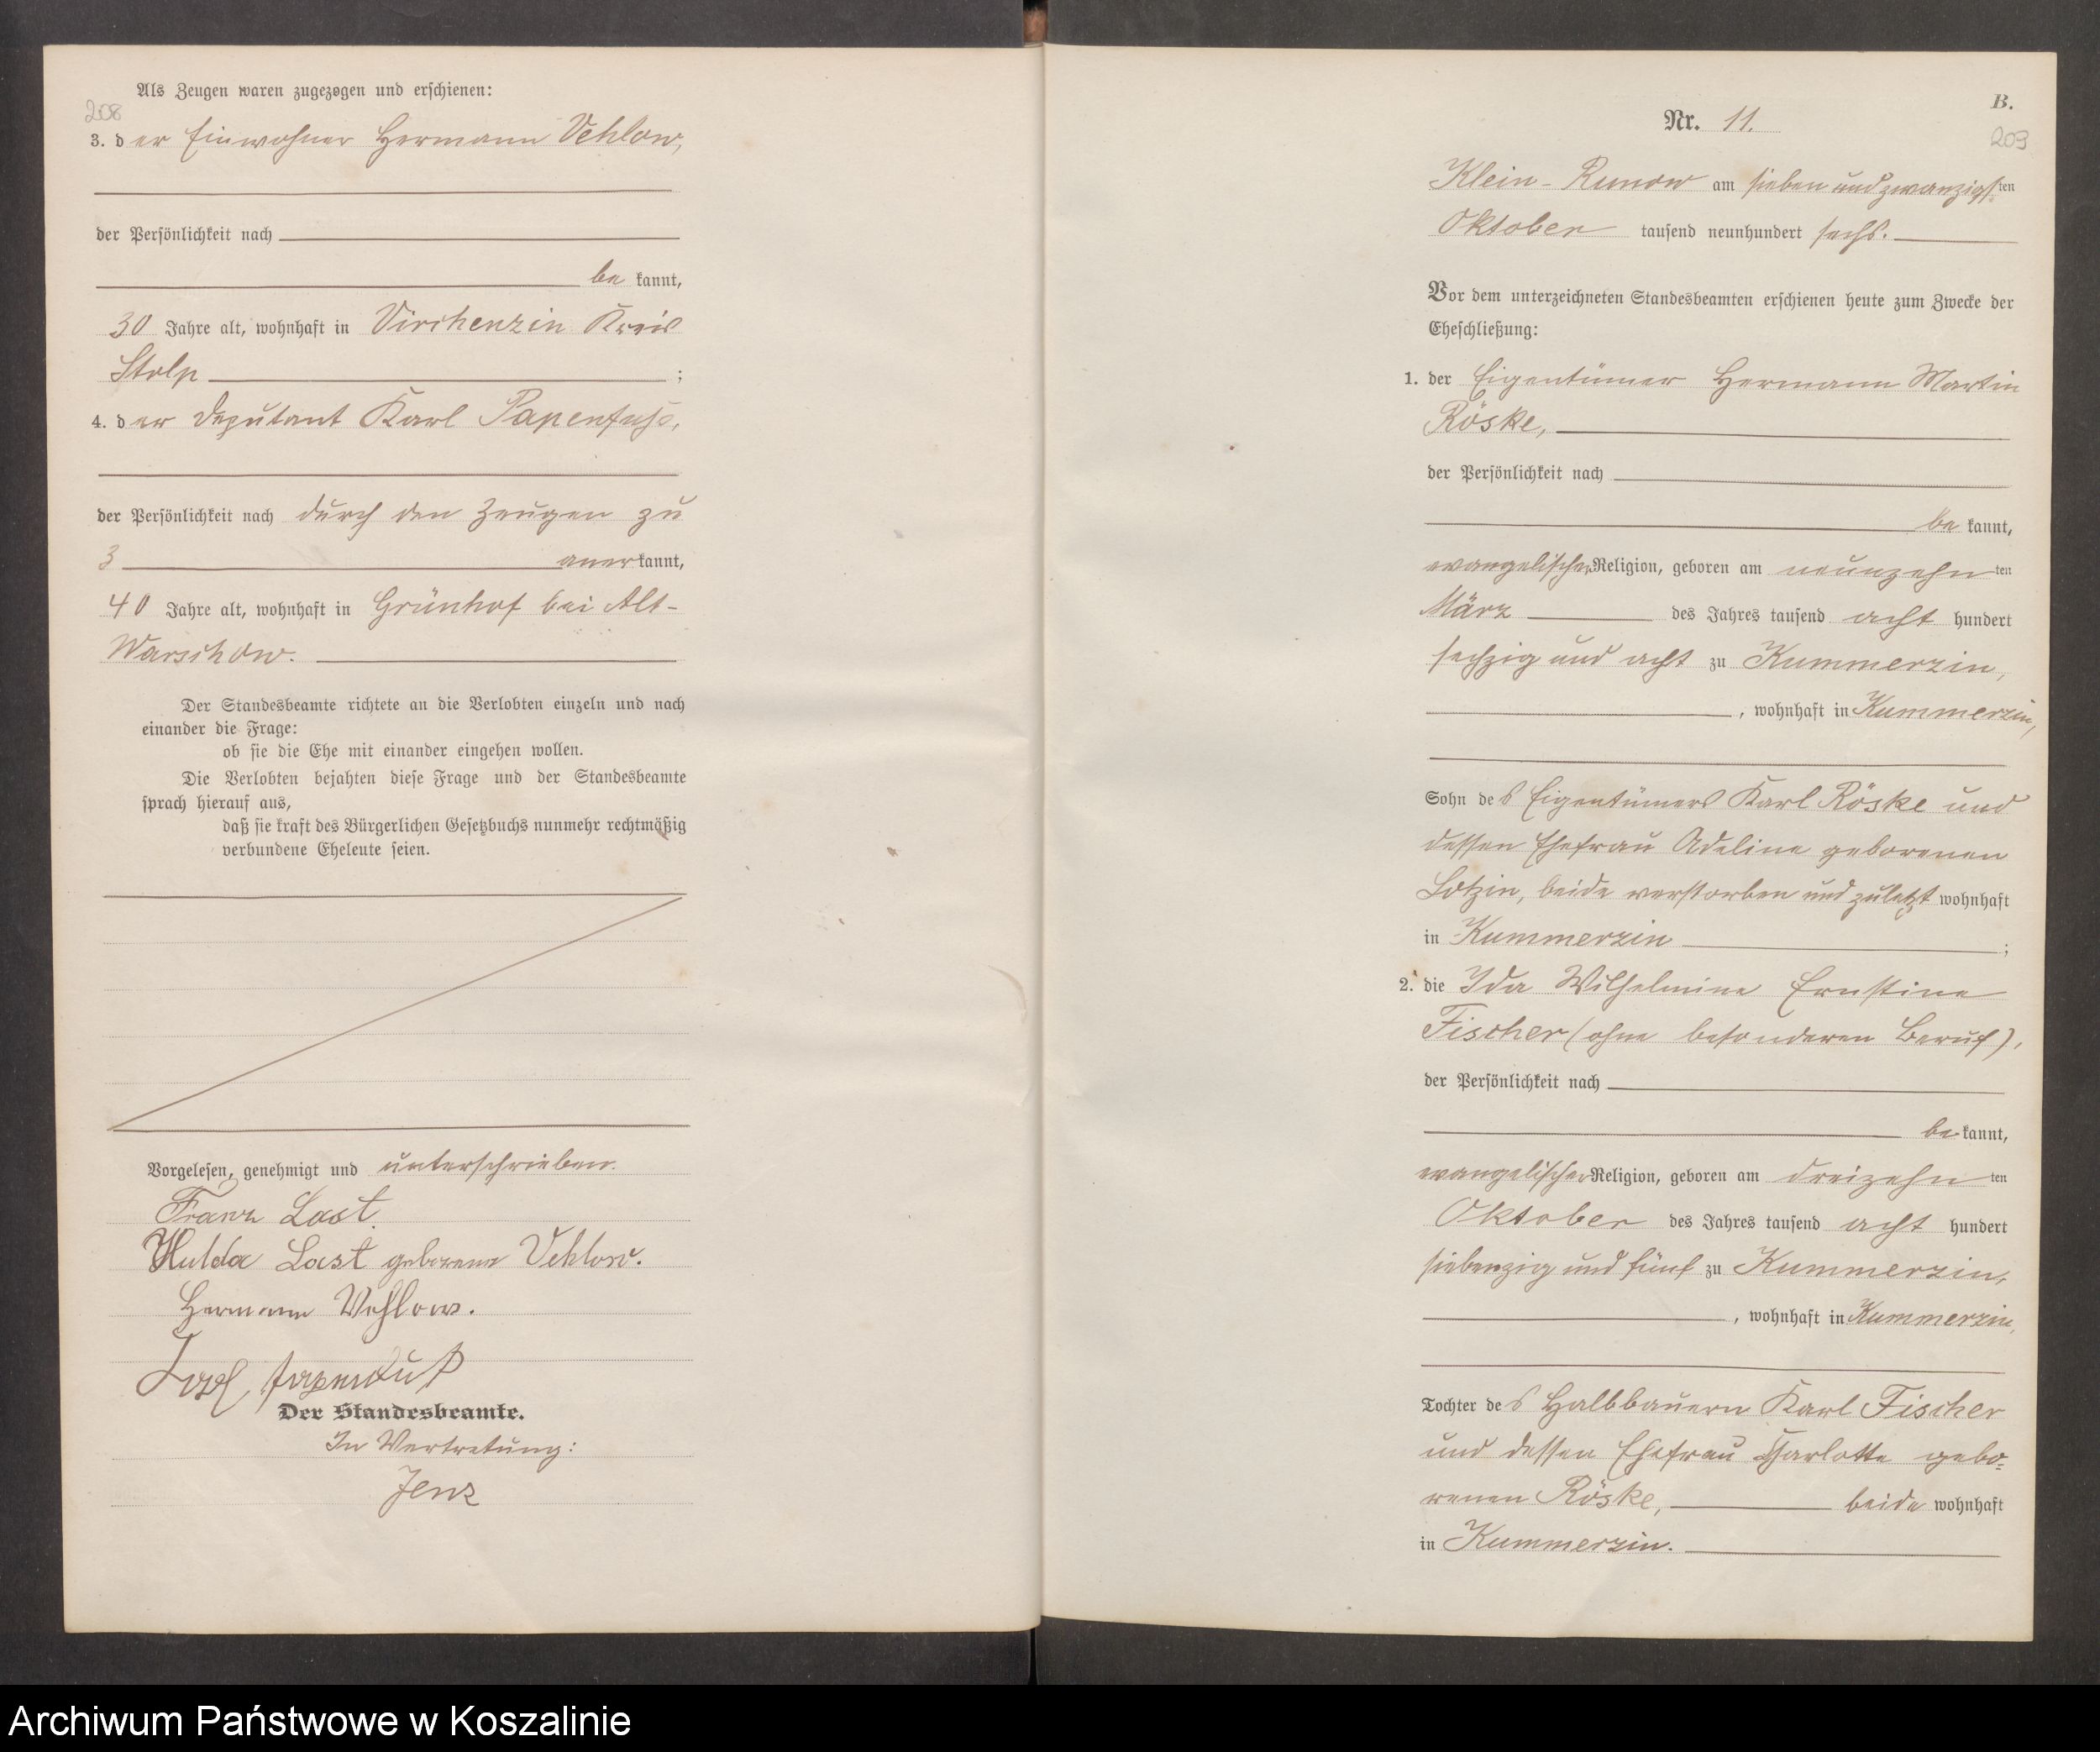 208
Als Zeugen waren zugezogen und erschienen:
3. der Einwohner Hermann Vehlow,
der Persönlichkeit nach
be kannt,
30 Jahre alt, wohnhaft in Virchenzin Kreis
Stolp ;
4. der Deputant Karl Papenfuß,
der Persönlichkeit nach durch den Zeugen zu
3 aner kannt,
40 Jahre alt, wohnhaft in Grünhof bei Alt-
Warschow.
Der Standesbeamte richtete an die Verlobten einzeln und nach
einander die Frage:
ob sie die Ehe mit einander eingehen wollen.
Die Verlobten bejahten diese Frage und der Standesbeamte
sprach hierauf aus,
daß sie kraft des Bürgerlichen Gesetzbuchs nunmehr rechtmäßig
verbundene Eheleute seien.
Vorgelesen, genehmigt und unterschrieben.
Franz Last.
Hulda Last geborene Vehlow.
Hermann Vehlow.
Karl Papenfuß
Der Standesbeamte.
In Vertretung:
Jenz
B.
Nr. 11.
209
Klein-Runow am sieben und zwanzigsten
Oktober tausend neunhundert sechs.
Vor dem unterzeichneten Standesbeamten erschienen heute zum Zwecke der
Eheschließung:
1. der Eigentümer Hermann Martin
Röske,
der Persönlichkeit nach
be kannt,
evangelischer Religion, geboren am neunzehn ten
März des Jahres tausend acht hundert
sechzig und acht zu Kummerzin,
, wohnhaft in Kummerzin,
Sohn des Eigentümers Karl Röske und
dessen Ehefrau Adeline geborenen
Lotzin, beide verstorben und zuletzt wohnhaft
in Kummerzin ;
2. die Ida Wilhelmine Ernstine
Fischer (ohne besonderen Beruf),
der Persönlichkeit nach
be kannt,
evangelischer Religion, geboren am dreizehn ten
Oktober des Jahres tausend acht hundert
siebenzig und fünf zu Kummerzin,
, wohnhaft in Kummerzin,
Tochter des Halbbauern Karl Fischer
und dessen Ehefrau Charlotte gebo-
renen Röske, beide wohnhaft
in Kummerzin.
Archiwum Państwowe w Koszalinie